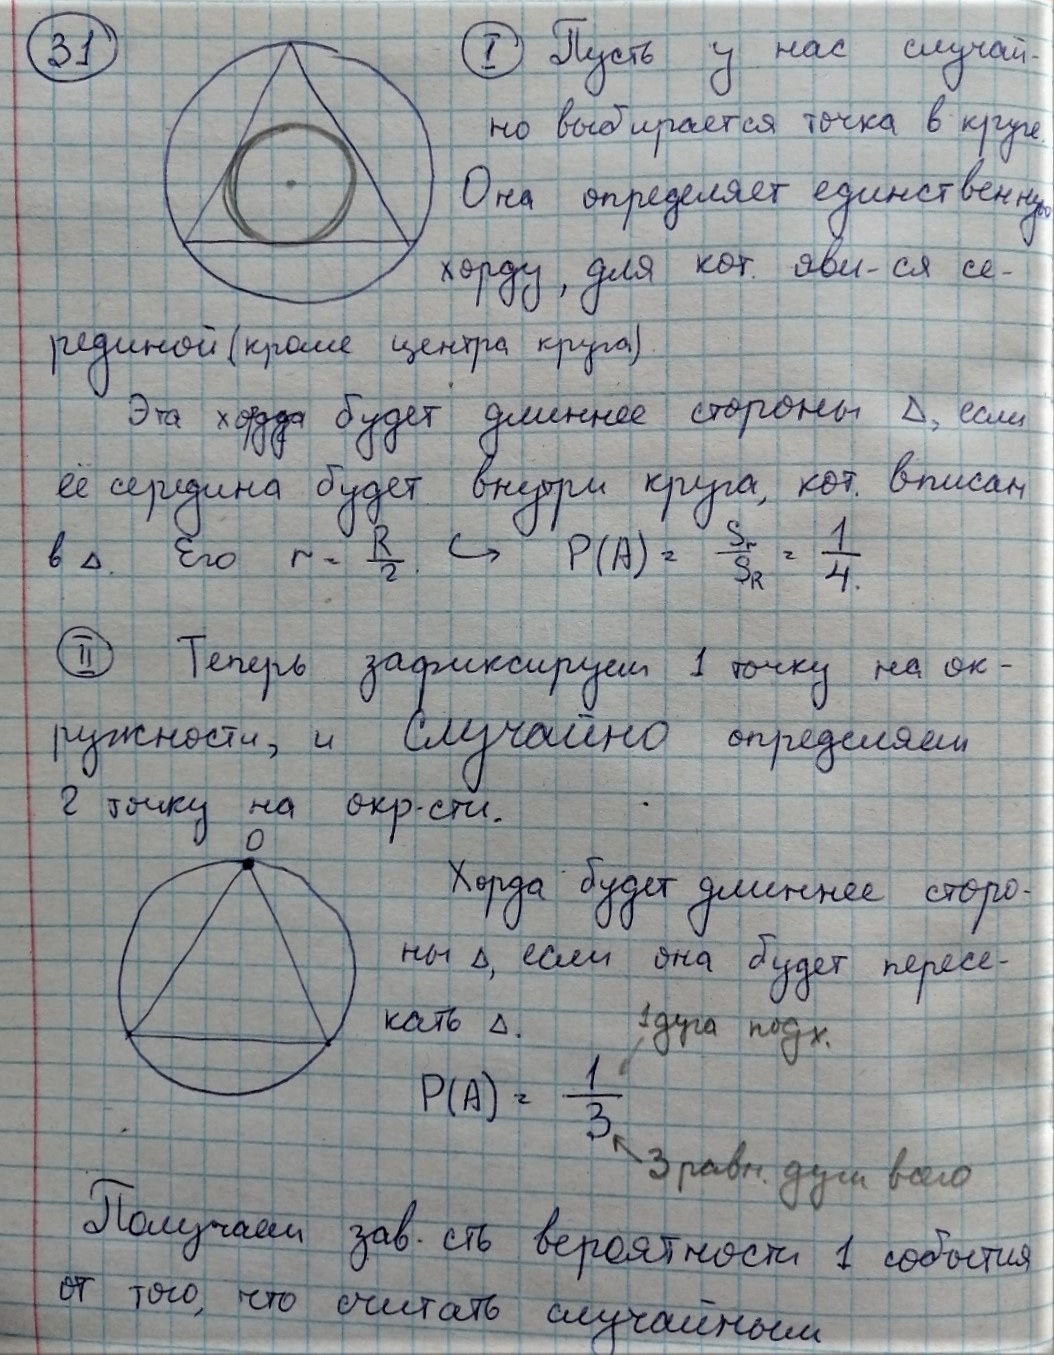 31
I Пусть у нас случай-
но выбирается точка в круге.
Она определяет единственную
хорду, для кот. яви-ся се-
рединой (кроме центра круга)
Эта хорда будет длиннее стороны Δ, если
её середина будет внутри круга, кот. вписан
в Δ. Его r = R/2. ↪ P(A) = Sr/SR = 1/4.
II Теперь зафиксируем 1 точку на ок-
ружности, и случайно определяем
2 точку на окр-сти.
O
Хорда будет длиннее сторо-
ны Δ, если она будет пересе-
кать Δ.
1 дуга подх.
P(A) = 1/3
3 равн. дуги всего
Получаем зав-сть вероятности 1 события
от того, что считать случайным